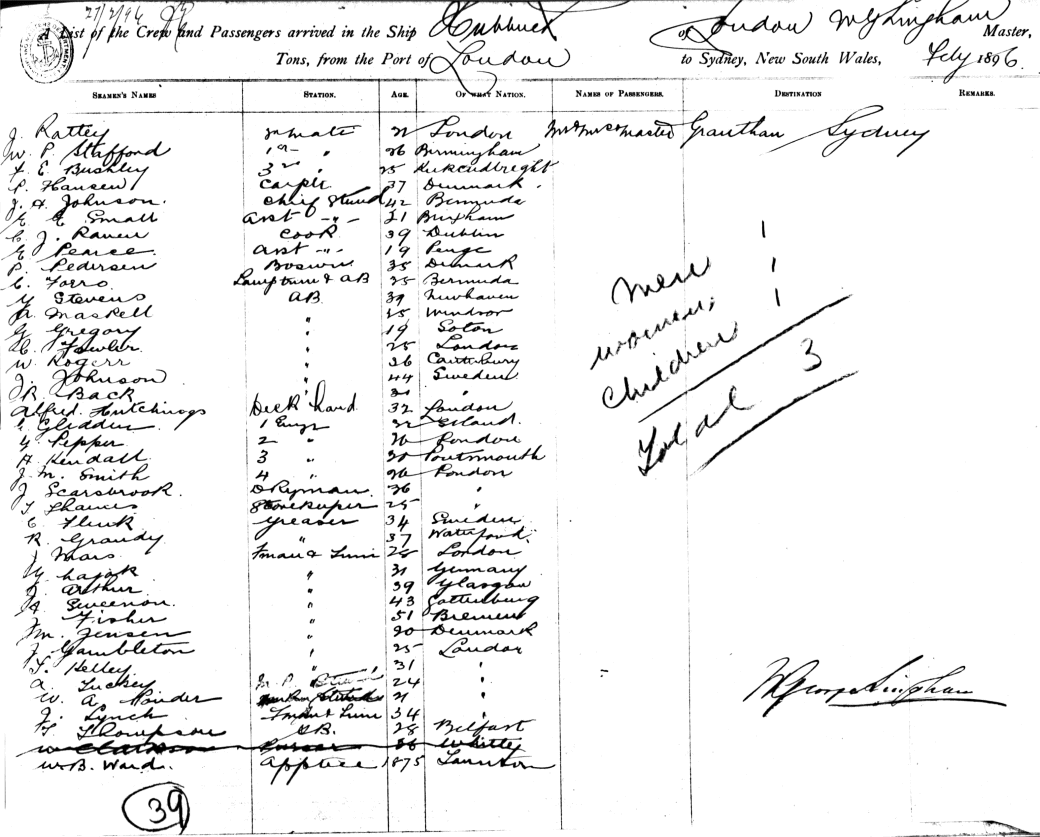 27/2/96
A List of the Crew and Passengers arrived in the Ship Hubbuck of London W G Lingham Master,
Tons, from the Port of London to Sydney, New South Wales, Feby 1896.
SEAMEN'S NAMES STATION. AGE. OF WHAT NATION. NAMES OF PASSENGERS. DESTINATION REMARKS.
J. Rattey 2 mate London Mr & Mrs & master Grantham Sydney
W. P. Stafford 1st " 26 Birmingham
E. Bushley 3rd 25 Kirkcudbright
P. Hansen Carptr 37 Denmark.
J. A. Johnson. Chief Stewd 42 Bermuda
E. E. Small Asst -"- 21 Brixham
C. J. Raven Cook 39 Dublin
E Pearce. Asst -"- 19 Penge
P. Pedersen Boswn 35 Denmark
C. Forro Lamptrim & AB 35 Bermuda
Stevens AB 39 Newhaven
Maskell " 25 Windsor
G Gregory " 19 Soton
Fowler " 25 London
W. Rogers " 36 Canterbury
J. Johnson " 44 Sweden
R. Back "
Alfred. Hutchings Deck hand 32 London
Gliddon 1 Engr 32
Pepper 2 " London
A Kendall 3 " 30 Portsmouth
J. M. Smith 4 " 26 London
J Scarsbrook. DKyman. 36 "
Storekeeper 25 "
C Flink Greaser 34 Sweden
R. Grandy " 37 Waterford.
J Mars Fman & Trim 28 London
" 31 Germany
Arthur " 39 Glasgow
A Sweenon. " 43 Gottenburg
J Fisher " 51 Bremen
M. Jensen " 20 Denmark
J Gambleton " 25 London
T. Kelley " 31 "
A. Tuckey 24 "
W. A. Pinder 21 "
J. Lynch & Trim 34 "
T Thompson AB. 28 Belfast
W Clarkson Purser 38 Whitby
W. B. Ward. Apptce 1875 Taunton
39
Men 1
women, 1
Children 1
Total 3
W George Lingham